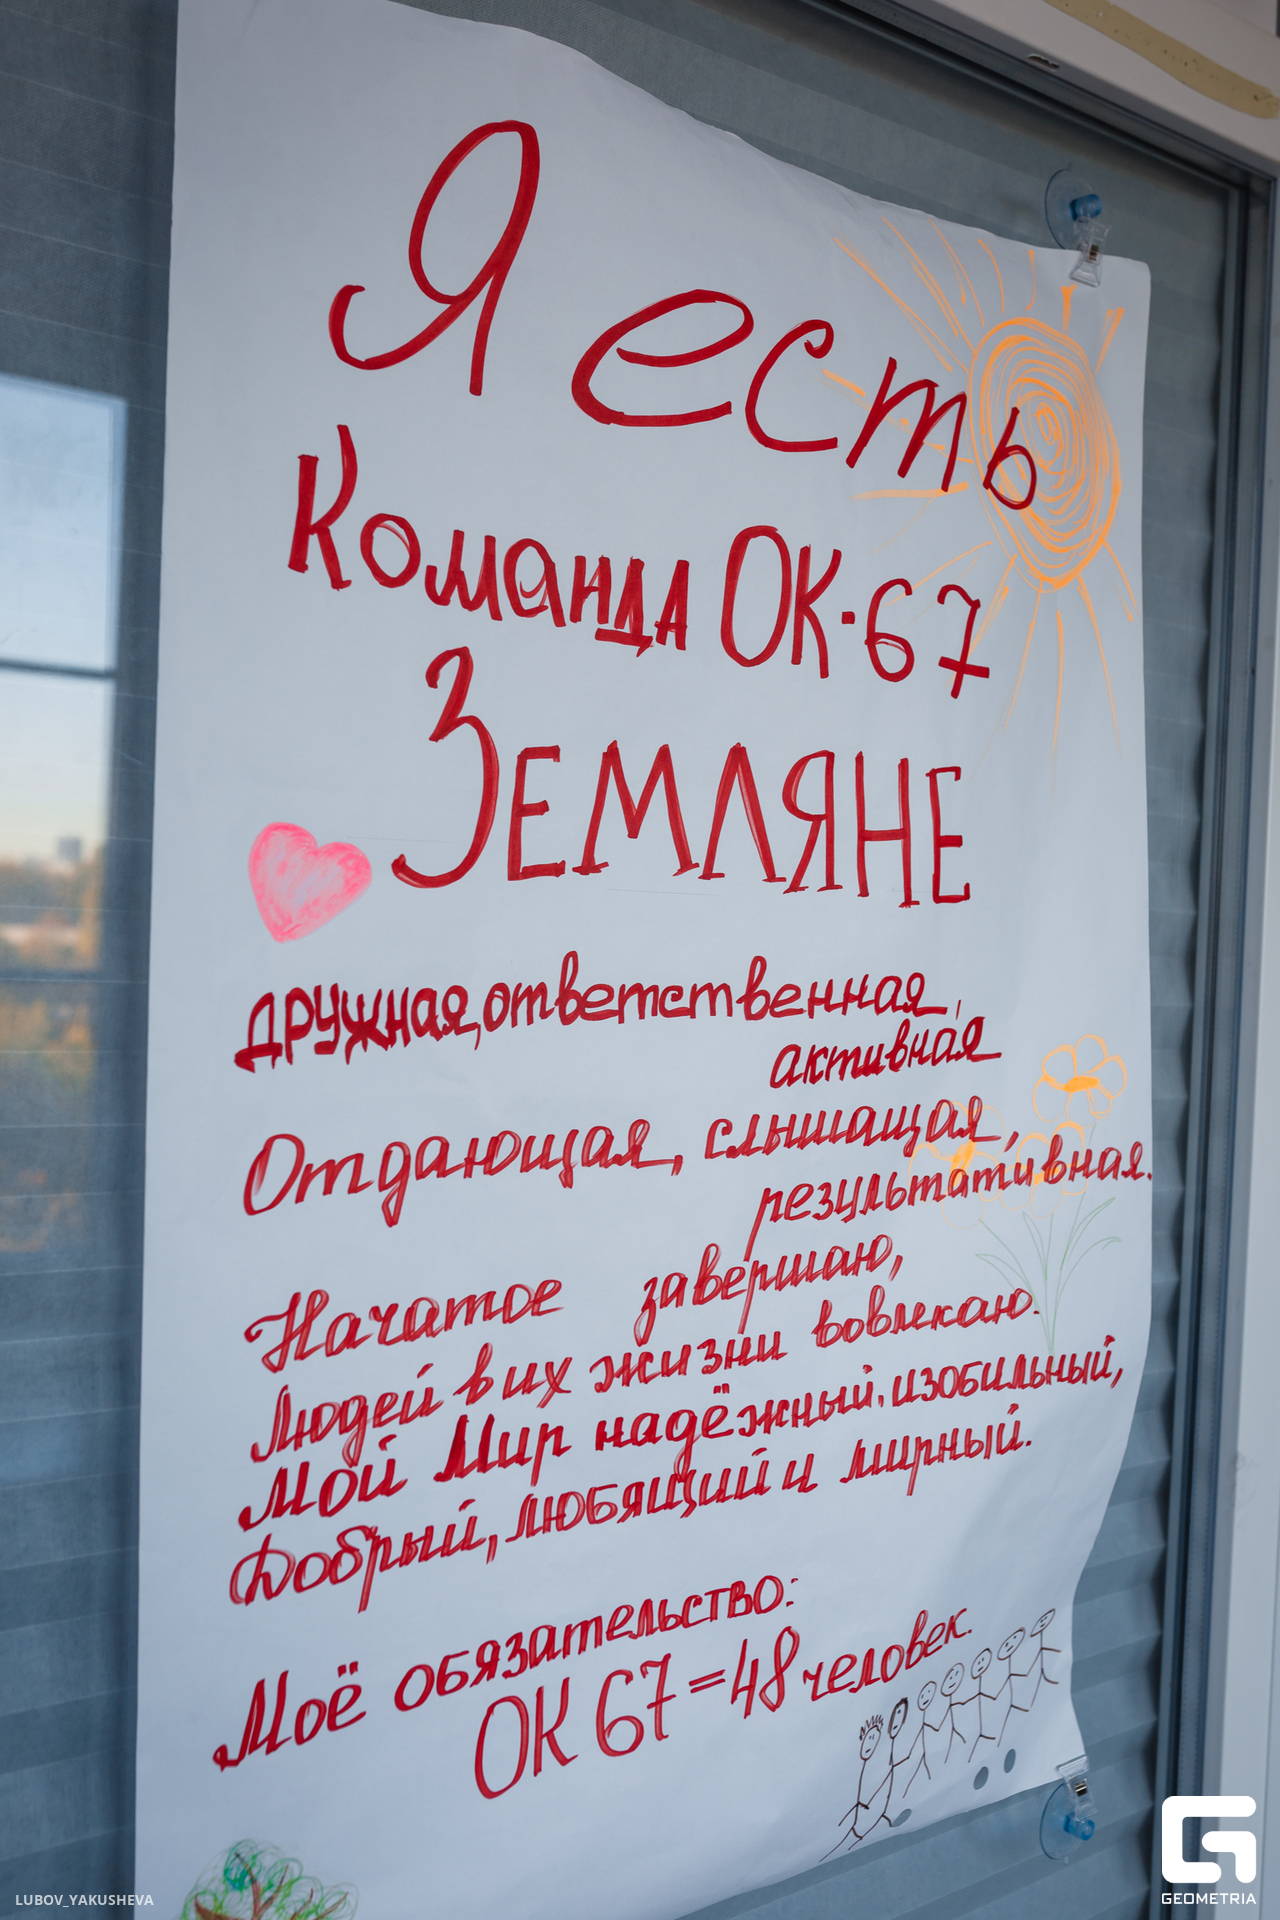 Я есть
Команда ОК-67
ЗЕМЛЯНЕ
дружная, ответственная,
активная
Отдающая, слышащая,
результативная.
Начатое завершаю,
Людей в их жизни вовлекаю.
Мой Мир надёжный, изобильный,
Добрый, любящий и мирный.
Моё обязательство:
ОК 67 = 48 человек.
LUBOV_YAKUSHEVA
GEOMETRIA